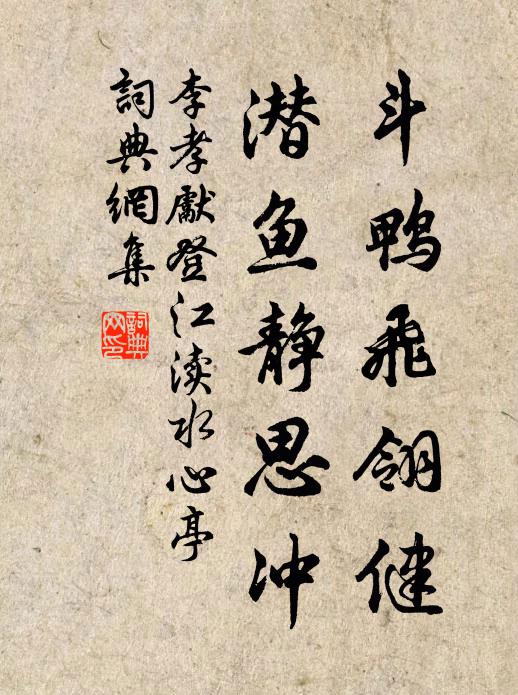 斗鸭飛翎健
潜鱼靜思冲
李孝獻登江渎水心亭
詞典網集
詞典
网印